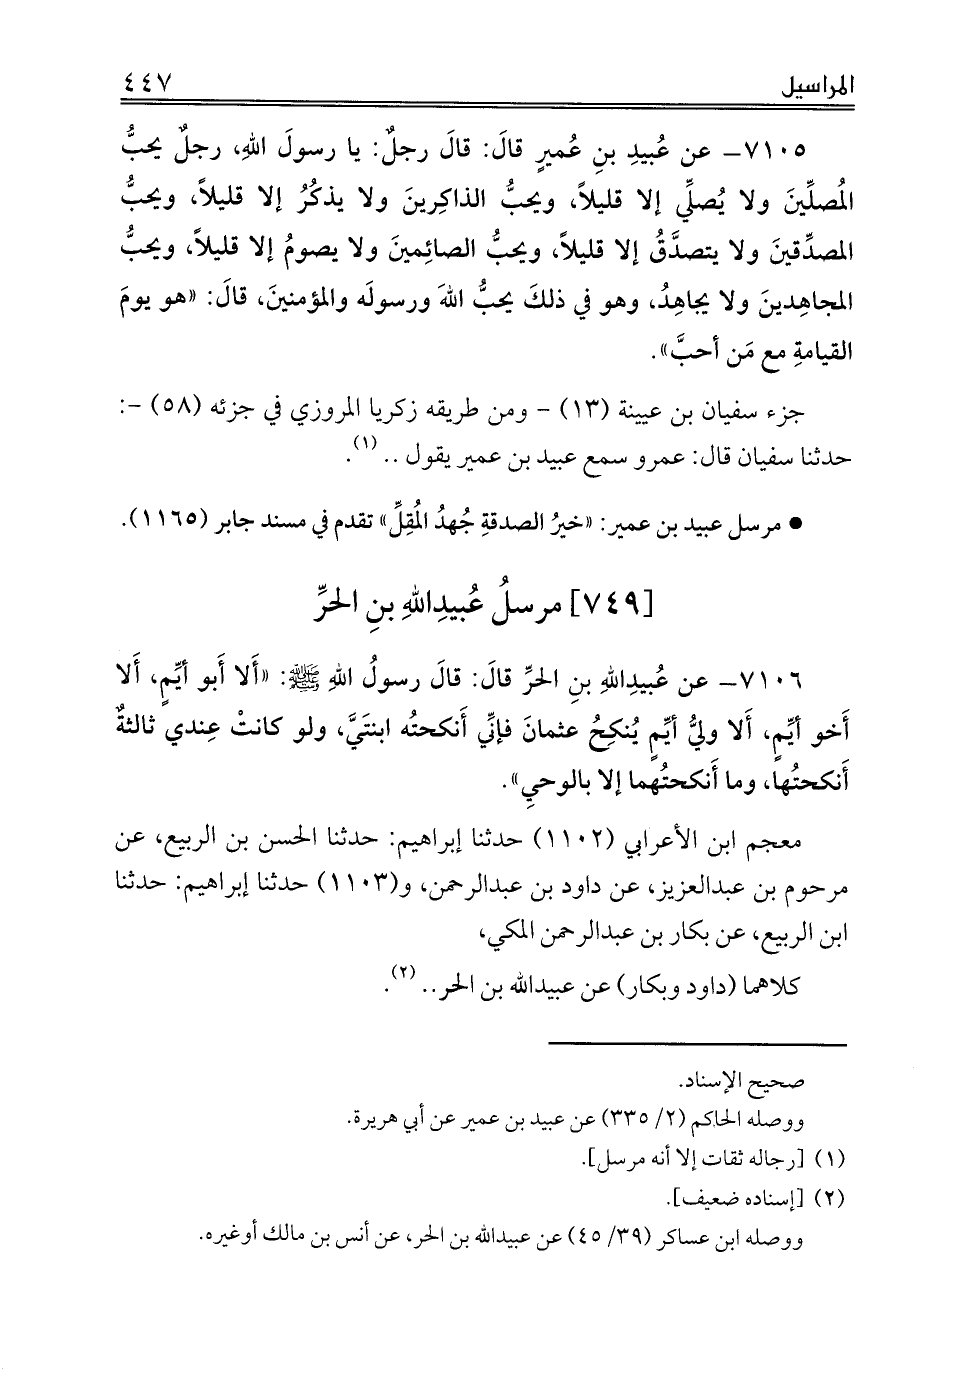 المراسيل ٤٤٧
٧١٠٥ـ عن عُبيدِ بنِ عُميرٍ قالَ: قالَ رجلٌ: يا رسولَ اللهِ، رجلٌ يحبُّ
المُصلِّينَ ولا يُصلِّي إلا قليلاً، ويحبُّ الذاكِرينَ ولا يذكُرُ إلا قليلاً، ويحبُّ
المصدِّقينَ ولا يتصدَّقُ إلا قليلاً، ويحبُّ الصائِمينَ ولا يصومُ إلا قليلاً، ويحبُّ
المجاهِدينَ ولا يجاهِدُ، وهو في ذلكَ يحبُّ اللهَ ورسولَه والمؤمنينَ، قالَ: «هو يومَ
القيامةِ مع مَن أحبَّ».
جزء سفيان بن عيينة (١٣) - ومن طريقه زكريا المروزي في جزئه (٥٨) -:
حدثنا سفيان قال: عمرو سمع عبيد بن عمير يقول ..(١).
● مرسل عبيد بن عمير: «خيرُ الصدقةِ جُهدُ المُقلِّ» تقدم في مسند جابر (١١٦٥).
[٧٤٩] مرسلُ عُبيدِاللهِ بنِ الحرِّ
٧١٠٦ـ عن عُبيدِاللهِ بنِ الحرِّ قالَ: قالَ رسولُ اللهِ ﷺ: «أَلا أبو أيِّمٍ، أَلا
أَخو أيِّمٍ، أَلا وليُّ أيِّمٍ يُنكِحُ عثمانَ فإنِّي أَنكحتُه ابنتَيَّ، ولو كانتْ عِندي ثالثةٌ
أَنكحتُها، وما أَنكحتُهما إلا بالوحيِ».
معجم ابن الأعرابي (١١٠٢) حدثنا إبراهيم: حدثنا الحسن بن الربيع، عن
مرحوم بن عبدالعزيز، عن داود بن عبدالرحمن، و(١١٠٣) حدثنا إبراهيم: حدثنا
ابن الربيع، عن بكار بن عبدالرحمن المكي،
كلاهما (داود وبكار) عن عبيدالله بن الحر..(٢).
صحيح الإسناد.
ووصله الحاكم (٢/ ٣٣٥) عن عبيد بن عمير عن أبي هريرة.
(١) [رجاله ثقات إلا أنه مرسل].
(٢) [إسناده ضعيف].
ووصله ابن عساكر (٣٩/ ٤٥) عن عبيدالله بن الحر، عن أنس بن مالك أوغيره.